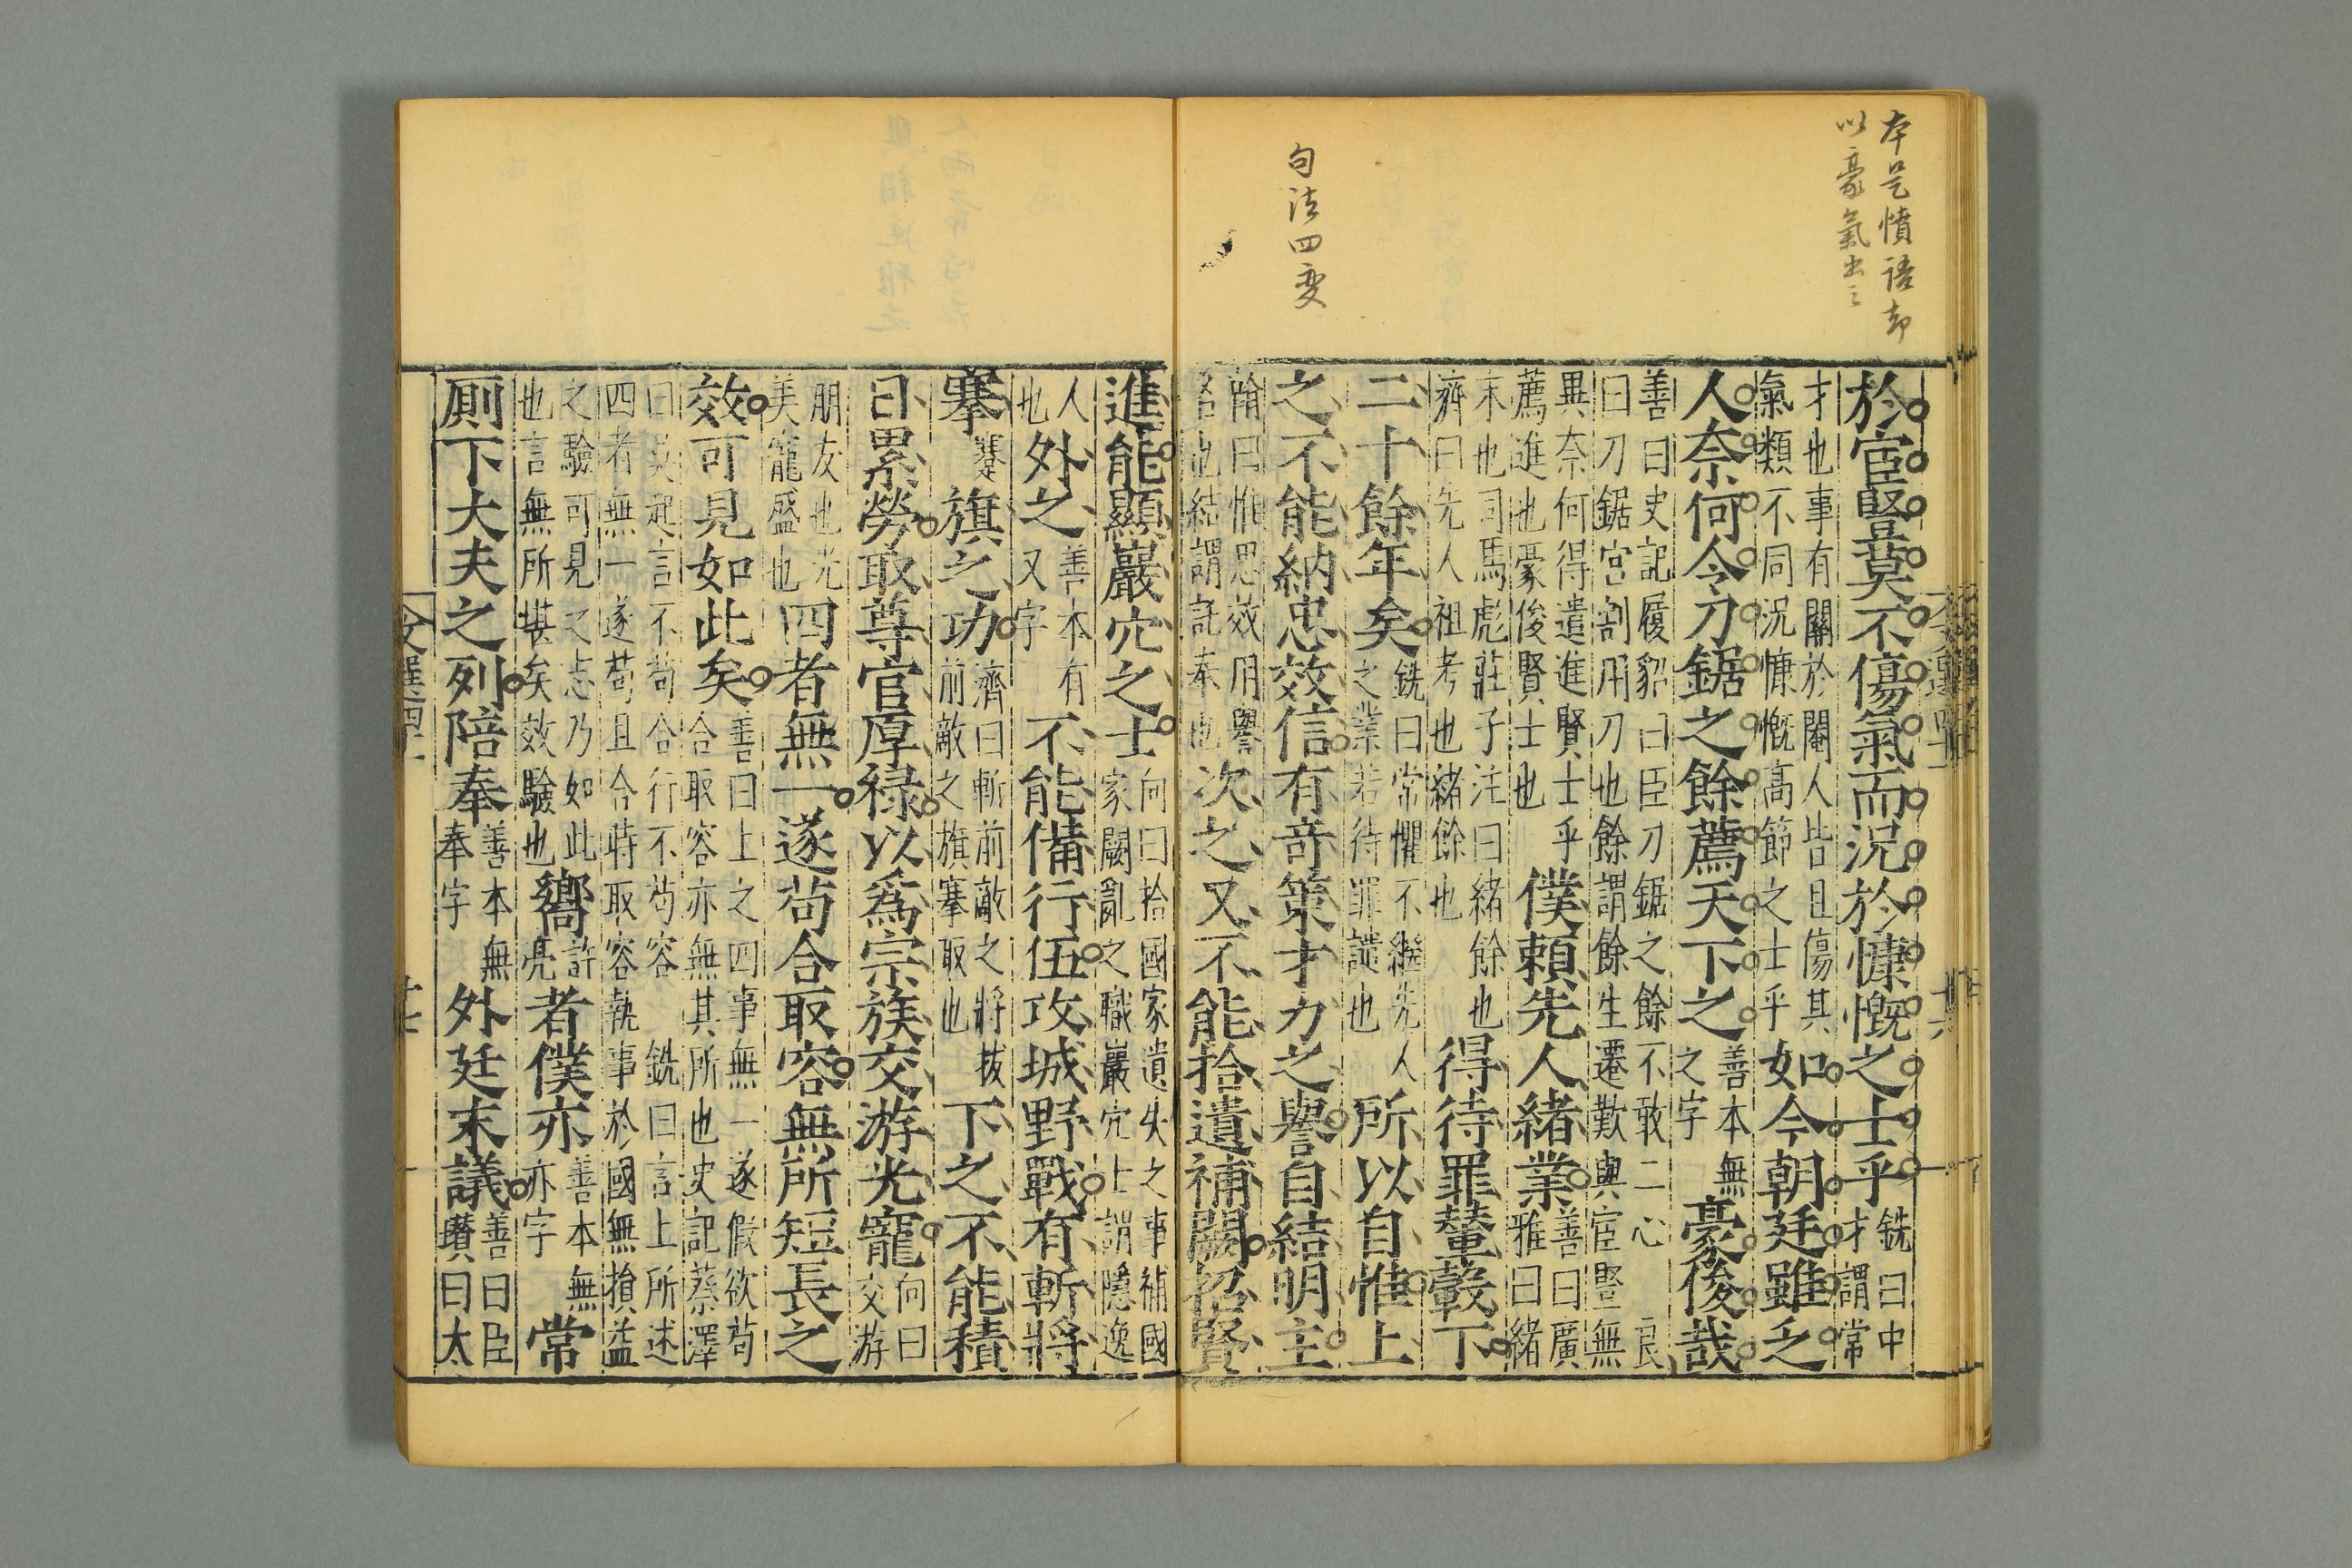 本是憤語却
以豪氣出之
句法四変
於宦豎莫不傷氣而況於慷慨之士乎銑曰中才謂常
才也事有關於閹人皆且傷其氣類不同況慷慨高節之士乎如今朝廷雖乏
人奈何令刀鋸之餘薦天下之善本無之字豪俊哉
善曰史記履貂曰臣刀鋸之餘不敢二心 良
曰刀鋸宮割用刀也餘謂餘生遷歎與宦豎無
異奈何得遣進賢士乎薦進也豪俊賢士也僕頼先人緒業善曰廣雅曰緒
末也司馬彪莊子注曰緒餘也濟曰先人祖考也緒餘也得待罪輦轂下
二十餘年矣銑曰常懼不繼先人之業若待罪譴也所以自惟上
之不能納忠效信有竒策才力之譽自結明主
翰曰惟思效用譽名也結謂託奉也次之又不能拾遺補闕招賢
進能顯巖穴之士向曰拾國家遺失之事補國家闕亂之職巖穴上謂隱逸
人也外之善本有又字不能備行伍攻城野戰有斬將
搴蹇旗之功濟曰斬前敵之將拔前敵之旗搴取也下之不能積
日累勞取尊官厚禄以爲宗族交游光寵向曰交游
朋友也光美寵盛也四者無一遂苟合取容無所短長之
效可見如此矣善曰上之四事無一遂假欲苟合取容亦無其所也史記蔡澤
曰吳起言不苟合行不苟容 銑曰言上所述
四者無一遂苟且合時取容執事於國無損益
之驗可見之志乃如此也言無所堪矣效驗也嚮許亮者僕亦善本無亦字常
厠下大夫之列陪奉善本無奉字外廷末議善曰臣瓚曰太
文選四十一
十七